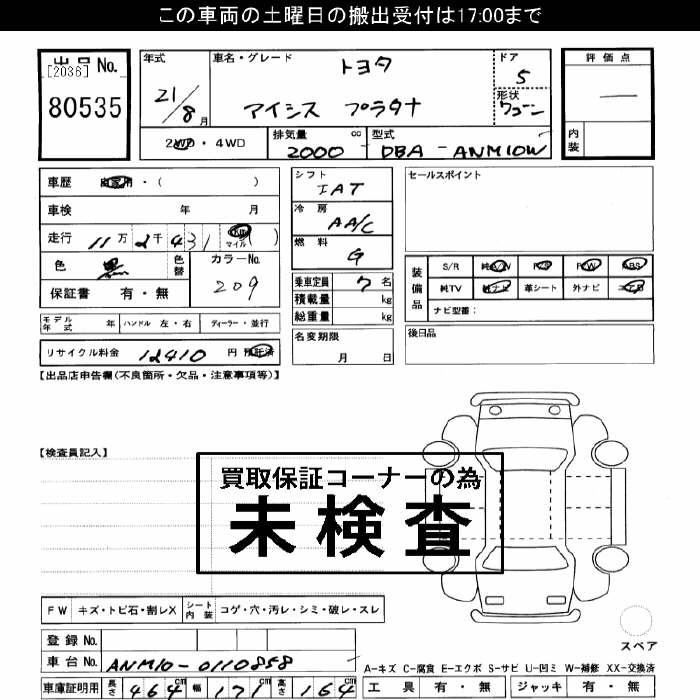 この車両の土曜日の搬出受付は17:00まで
出品No.
[2036]
80535
年式
21/8月
車名・グレード
トヨタ
アイシス プラタナ
ドア
5
形状
ワゴン
評価点
—
内装
2WD・4WD
排気量 cc
2000
型式
DBA - ANM10W
車歴 自家用・( )
車検 年 月
走行 11万2千431 km マイル ( )
色 黒 色替
カラーNo.
209
保証書 有・無
シフト
IAT
冷房
AA/C
燃料
G
乗車定員 7名
積載量 kg
総重量 kg
セールスポイント
装備品
S/R 純A/W P/S P/W ABS
純TV 純ナビ 革シート 外ナビ エアB
ナビ型番:
モデル年式 年 ハンドル 左・右 ディーラー・並行
リサイクル料金 12410 円 預託済
名変期限
月 日
後日品
【出品店申告欄(不良箇所・欠品・注意事項等)】
【検査員記入】
買取保証コーナーの為
未検査
FW キズ・トビ石・割レX シート内装 コゲ・穴・汚レ・シミ・破レ・スレ
登録No.
車台No. ANM10-0110858
車庫証明用 長さ 464cm 幅 171cm 高さ 164cm
スペア
A-キズ C-腐食 E-エクボ S-サビ U-凹ミ W-補修 XX-交換済
工具 有・無 ジャッキ 有・無